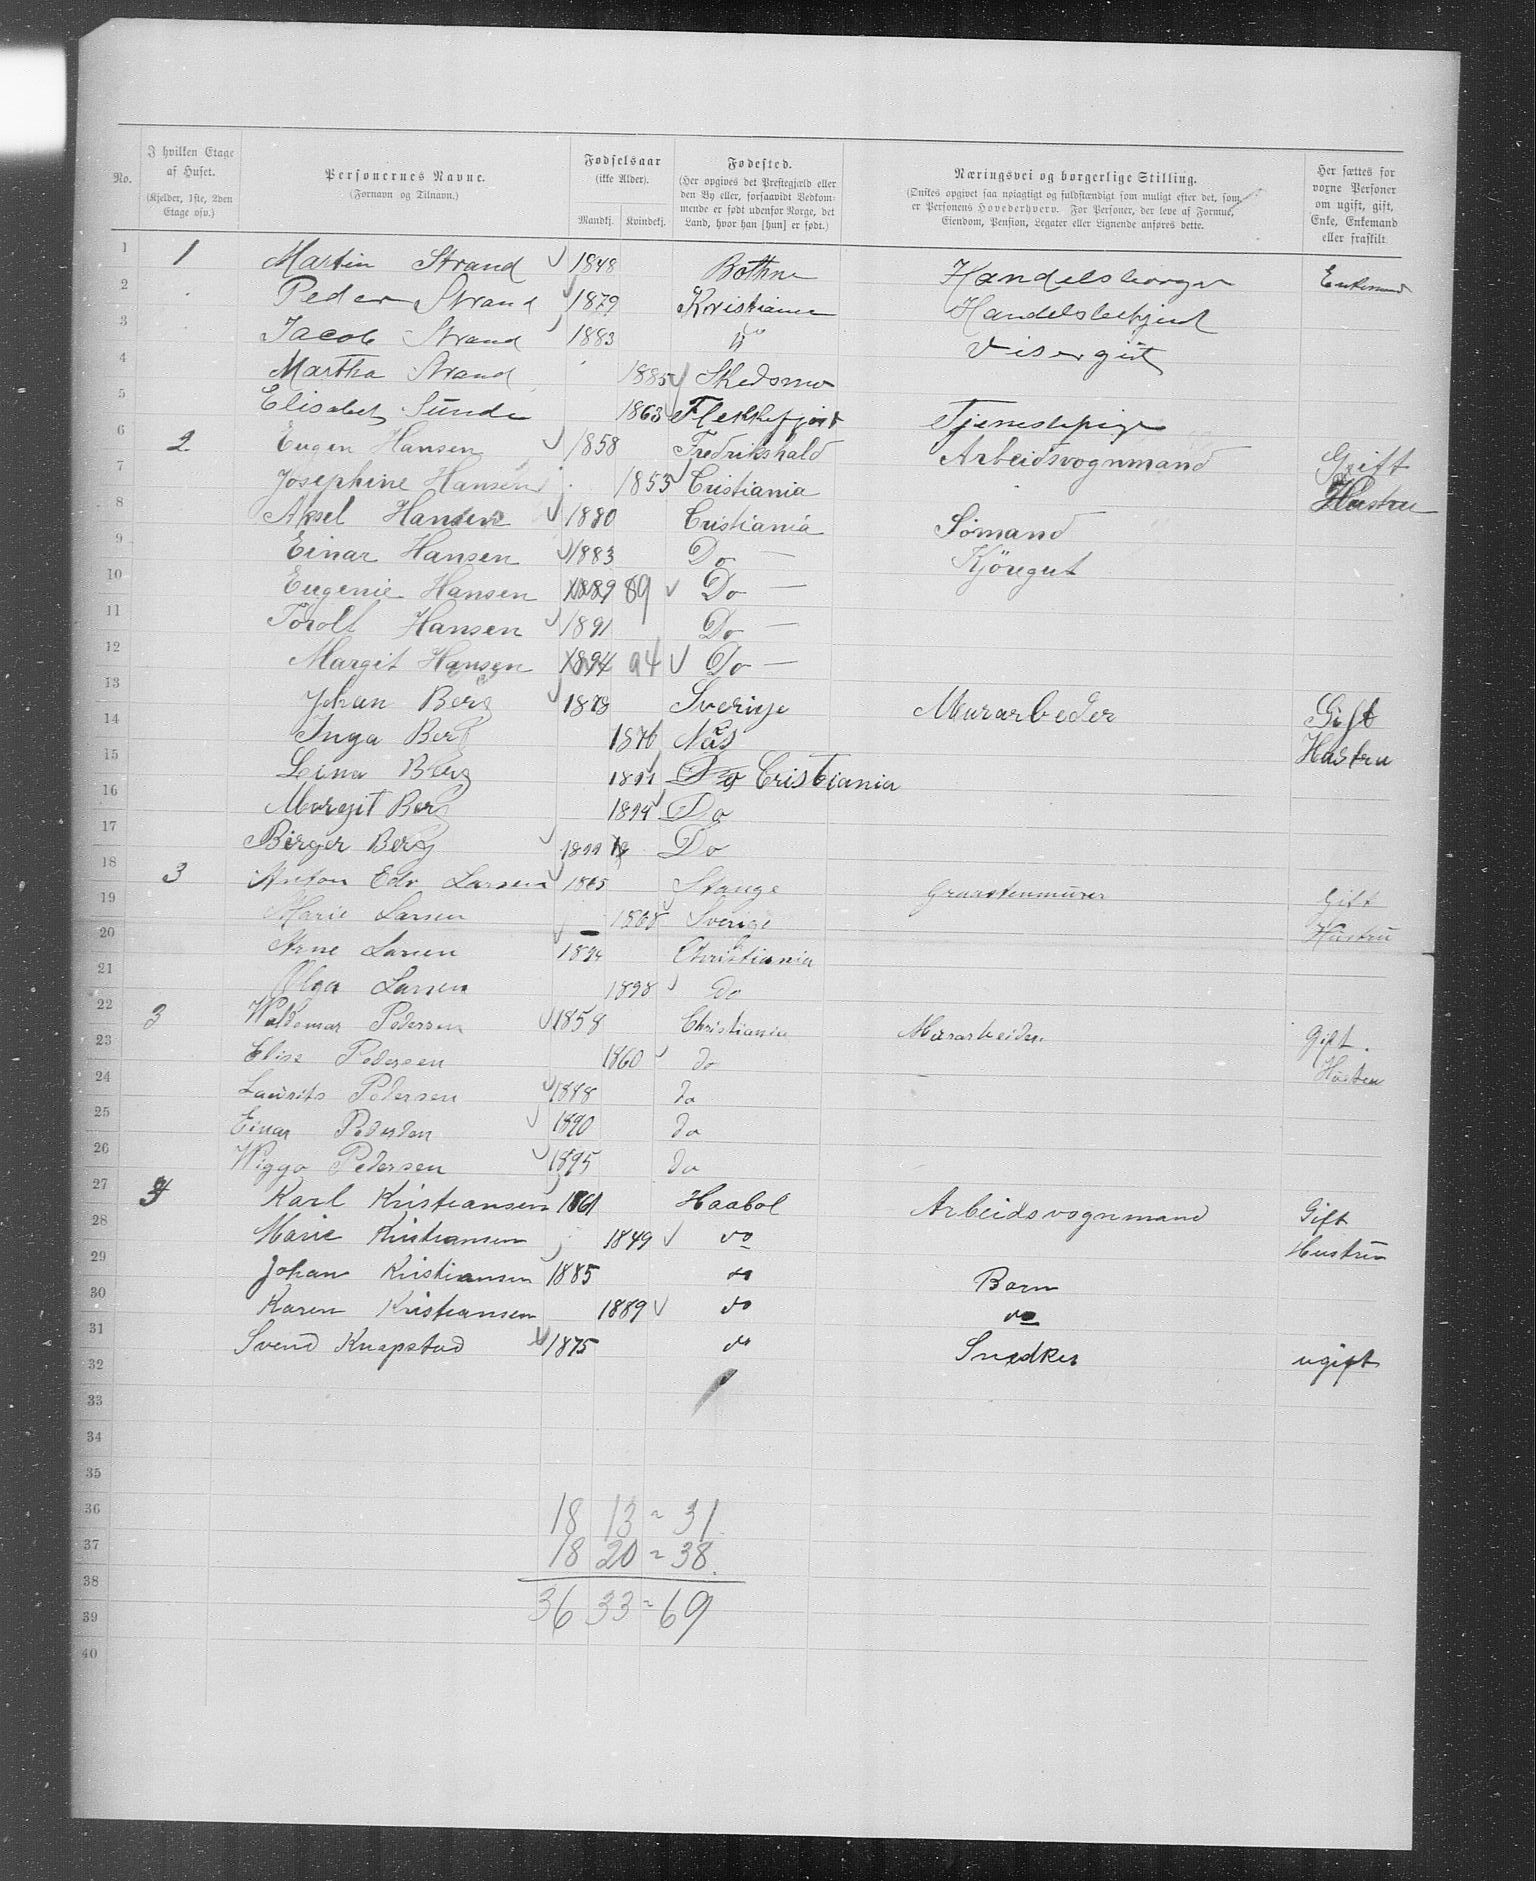 No. I hvilken Etage af Huset. (Kjelder, 1ste, 2den Etage osv.) Personernes Navne. (Fornavn og Tilnavn.) Fødselsaar (ikke Alder). Mandkj. Kvindekj. Fødested. (Her opgives det Prestegjæld eller den By eller, forsaavidt Vedkommende er født udenfor Norge, det Land, hvor han [hun] er født.) Næringsvei og borgerlige Stilling. (Ønskes opgivet saa nøiagtigt og fuldstændigt som muligt efter det, som er Personens Hovederhverv. For Personer, der leve af Formue, Eiendom, Pension, Legater eller Lignende anføres dette. Her sættes for voxne Personer om ugift, gift, Enke, Enkemand eller fraskilt.
1 1 Martin Strand 1848 Bothne Handelsborger Enkemand
2 Peder Strand 1879 Kristiania Handelsbetjent
3 Jacob Strand 1883 " Visergut
4 Martha Strand 1885 Skedsmo
5 Elisabet Sunde 1863 Flekkefjord Tjenestepige
6 2 Eugen Hansen 1858 Fredrikshald Arbeidsvognmand Gift
7 Josephine Hansen 1855 Cristiania Hustru
8 Aksel Hansen 1880 Cristiania Sømand
9 Einar Hansen 1883 Do — Kjöregut
10 Eugenie Hansen 1889 89 Do —
11 Torolf Hansen 1891 Do —
12 Margit Hansen 1894 94 Do —
13 Johan Berg 1873 Sverige Murarbeder Gift
14 Inga Berg 1876 Näs Hustru
15 Lina Berg Do Cristiania
16 Margit Berg 1894 Do
17 Birger Berg 1899 Do
18 3 Anton Edv Larsen 1865 Stange Graastenmurer Gift
19 Marie Larsen 1868 Sverige Hustru
20 Arne Larsen 1894 Christiania
21 Olga Larsen 1898 do
22 3 Waldemar Pedersen 1858 Christiania Murarbeider Gift.
23 Elise Pedersen 1860 do Hustru
24 Laurits Pedersen 1888 do
25 Einar Pedersen 1890 do
26 Wiggo Pedersen 1895 do
27 Karl Kristiansen 1861 Haabøl Arbeidsvognmand Gift
28 Marie Kristiansen 1849 do Hustru
29 Johan Kristiansen 1885 do Barn
30 Karen Kristiansen 1889 do do
31 Svend Knapstad 1875 do Snedker ugift
32
33
34
35
36 18 13 = 31
37 18 20 = 38.
38
39 36 33 = 69
40